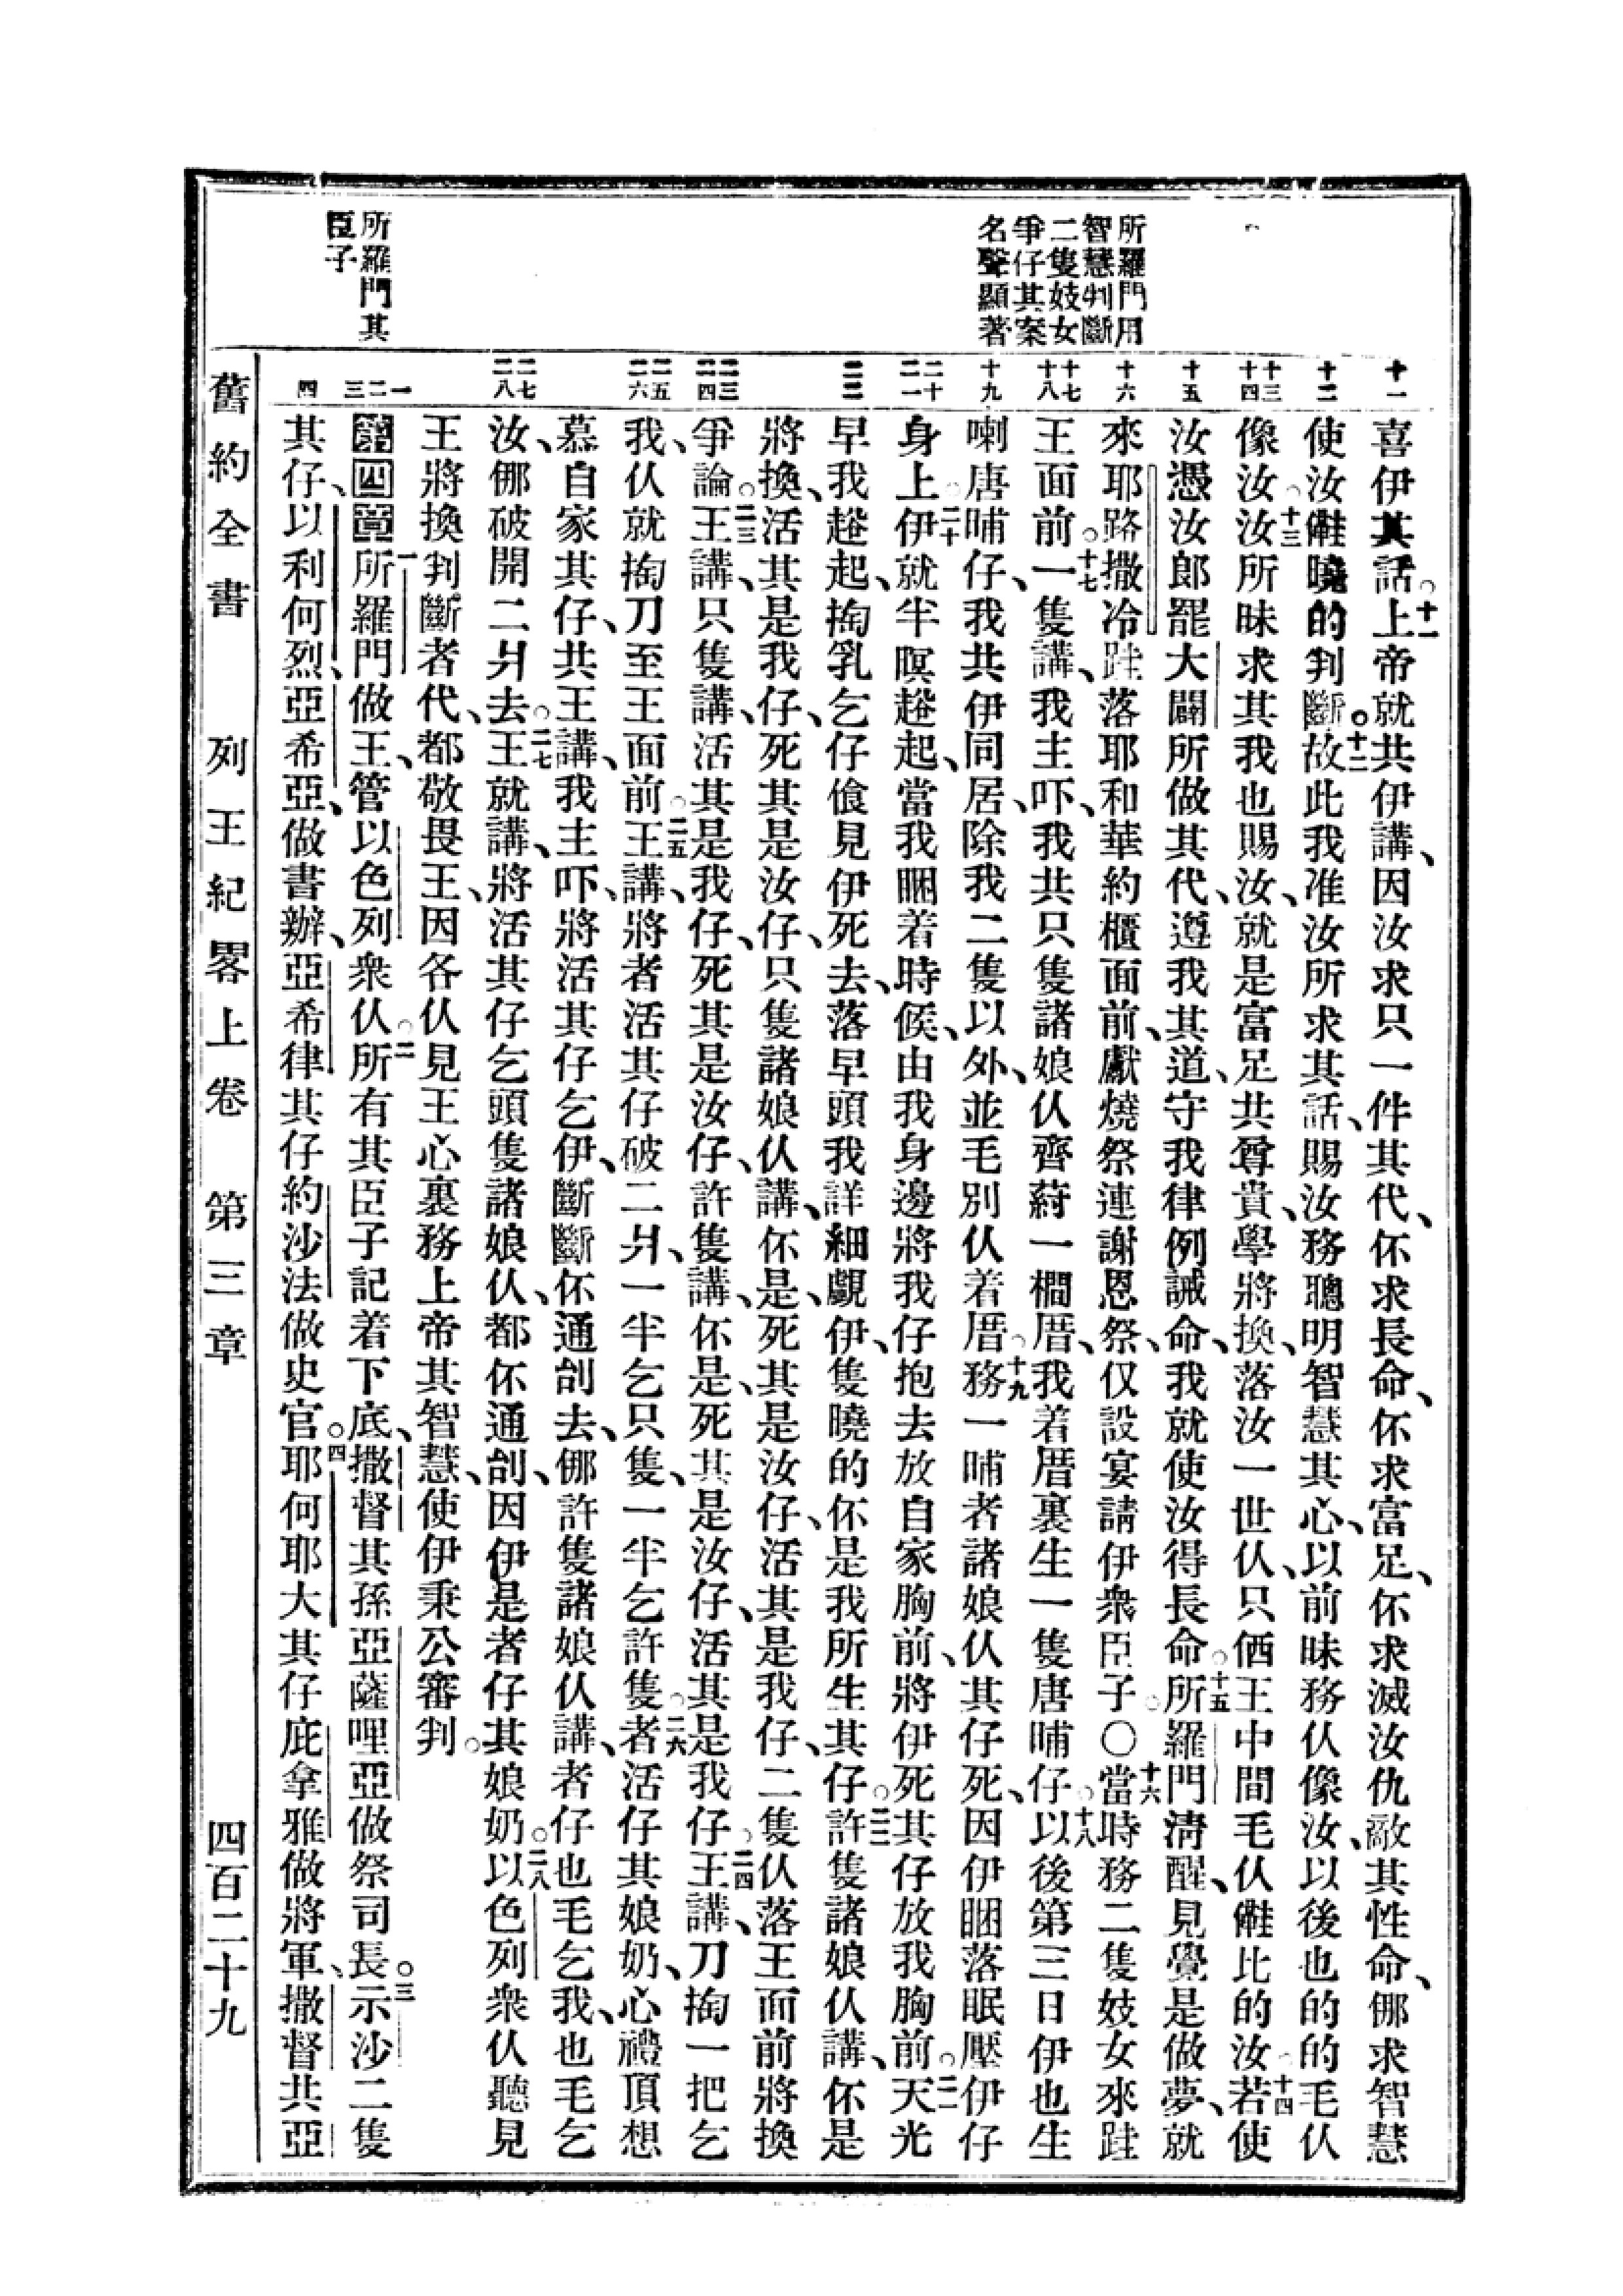 所羅門用
智慧判斷
二隻妓女
爭仔其案
名聲顯著
所羅門其
臣子
十一
十二
十三
十四
十五
十六
十七
十八
十九
二十
二一
二二
二三
二四
二五
二六
二七
二八
一
二
三
四
喜伊其話。十一上帝就共伊講、因汝求只一件其代、伓求長命、伓求富足、伓求滅汝仇敵其性命、㑚求智慧
使汝㒕曉的判斷。十二故此我准汝所求其話、賜汝務聰明智慧其心、以前昧務仈像汝、以後也的的毛仈
像汝。十三汝所昧求其我也賜汝、就是富足共尊貴、學將換、落汝一世仈、只𠊎王中間毛仈㒕比的汝。十四若使
汝憑汝郎罷大闢所做其代、遵我其道、守我律例誡命、我就使汝得長命。十五所羅門淸醒、見覺是做夢、就
來耶路撒冷跬落耶和華約櫃面前、獻燒祭連謝恩祭、仅設宴請伊衆臣子。〇十六當時務二隻妓女來跬
王面前。十七一隻講、我主吓、我共只隻諸娘仈齊蒔一橺厝、我着厝裏生一隻唐晡仔。十八以後第三日伊也生
喇唐晡仔、我共伊同居、除我二隻以外、並毛別仈着厝。十九務一晡者諸娘仈其仔死、因伊睏落眠壓伊仔
身上。二十伊就半暝趒起、當我睏着時候、由我身邊將我仔抱去放自家胸前、將伊死其仔放我胸前。二一天光
早我趒起、掏乳乞仔飧見伊死去、落早頭我詳細覷伊、隻曉的伓是我所生其仔。二二許隻諸娘仈講、伓是
將換、活其是我仔、死其是汝仔、只隻諸娘仈講、伓是、死其是汝仔、活其是我仔、二隻仈落王面前將換
爭論。二三王講、只隻講、活其是我仔、死其是汝仔、許隻講、伓是、死其是汝仔、活其是我仔。二四王講、刀掏一把乞
我、仈就掏刀至王面前。二五王講、將者活其仔破二爿、一半乞只隻、一半乞許隻。二六者活仔其娘奶、心禮頂想
慕自家其仔、共王講、我主吓、將活其仔乞伊、斷斷伓通刣去、㑚許隻諸娘仈講、者仔也毛乞我、也毛乞
汝、㑚破開二爿去。二七王就講、將活其仔乞頭隻諸娘仈、都伓通刣、因伊是者仔其娘奶。二八以色列衆仈聽見
王將換判斷者代、都敬畏王、因各仈見王心裏務上帝其智慧、使伊秉公審判。
第四章一所羅門做王、管以色列衆仈。二所有其臣子記着下底、撒督其孫亞薩哩亞做祭司長。三示沙二隻
其仔、以利何烈、亞希亞、做書辦、亞希律其仔約沙法做史官。四耶何耶大其仔庇拿雅做將軍、撒督共亞
舊約全書　列王紀畧上卷　第三章　四百二十九